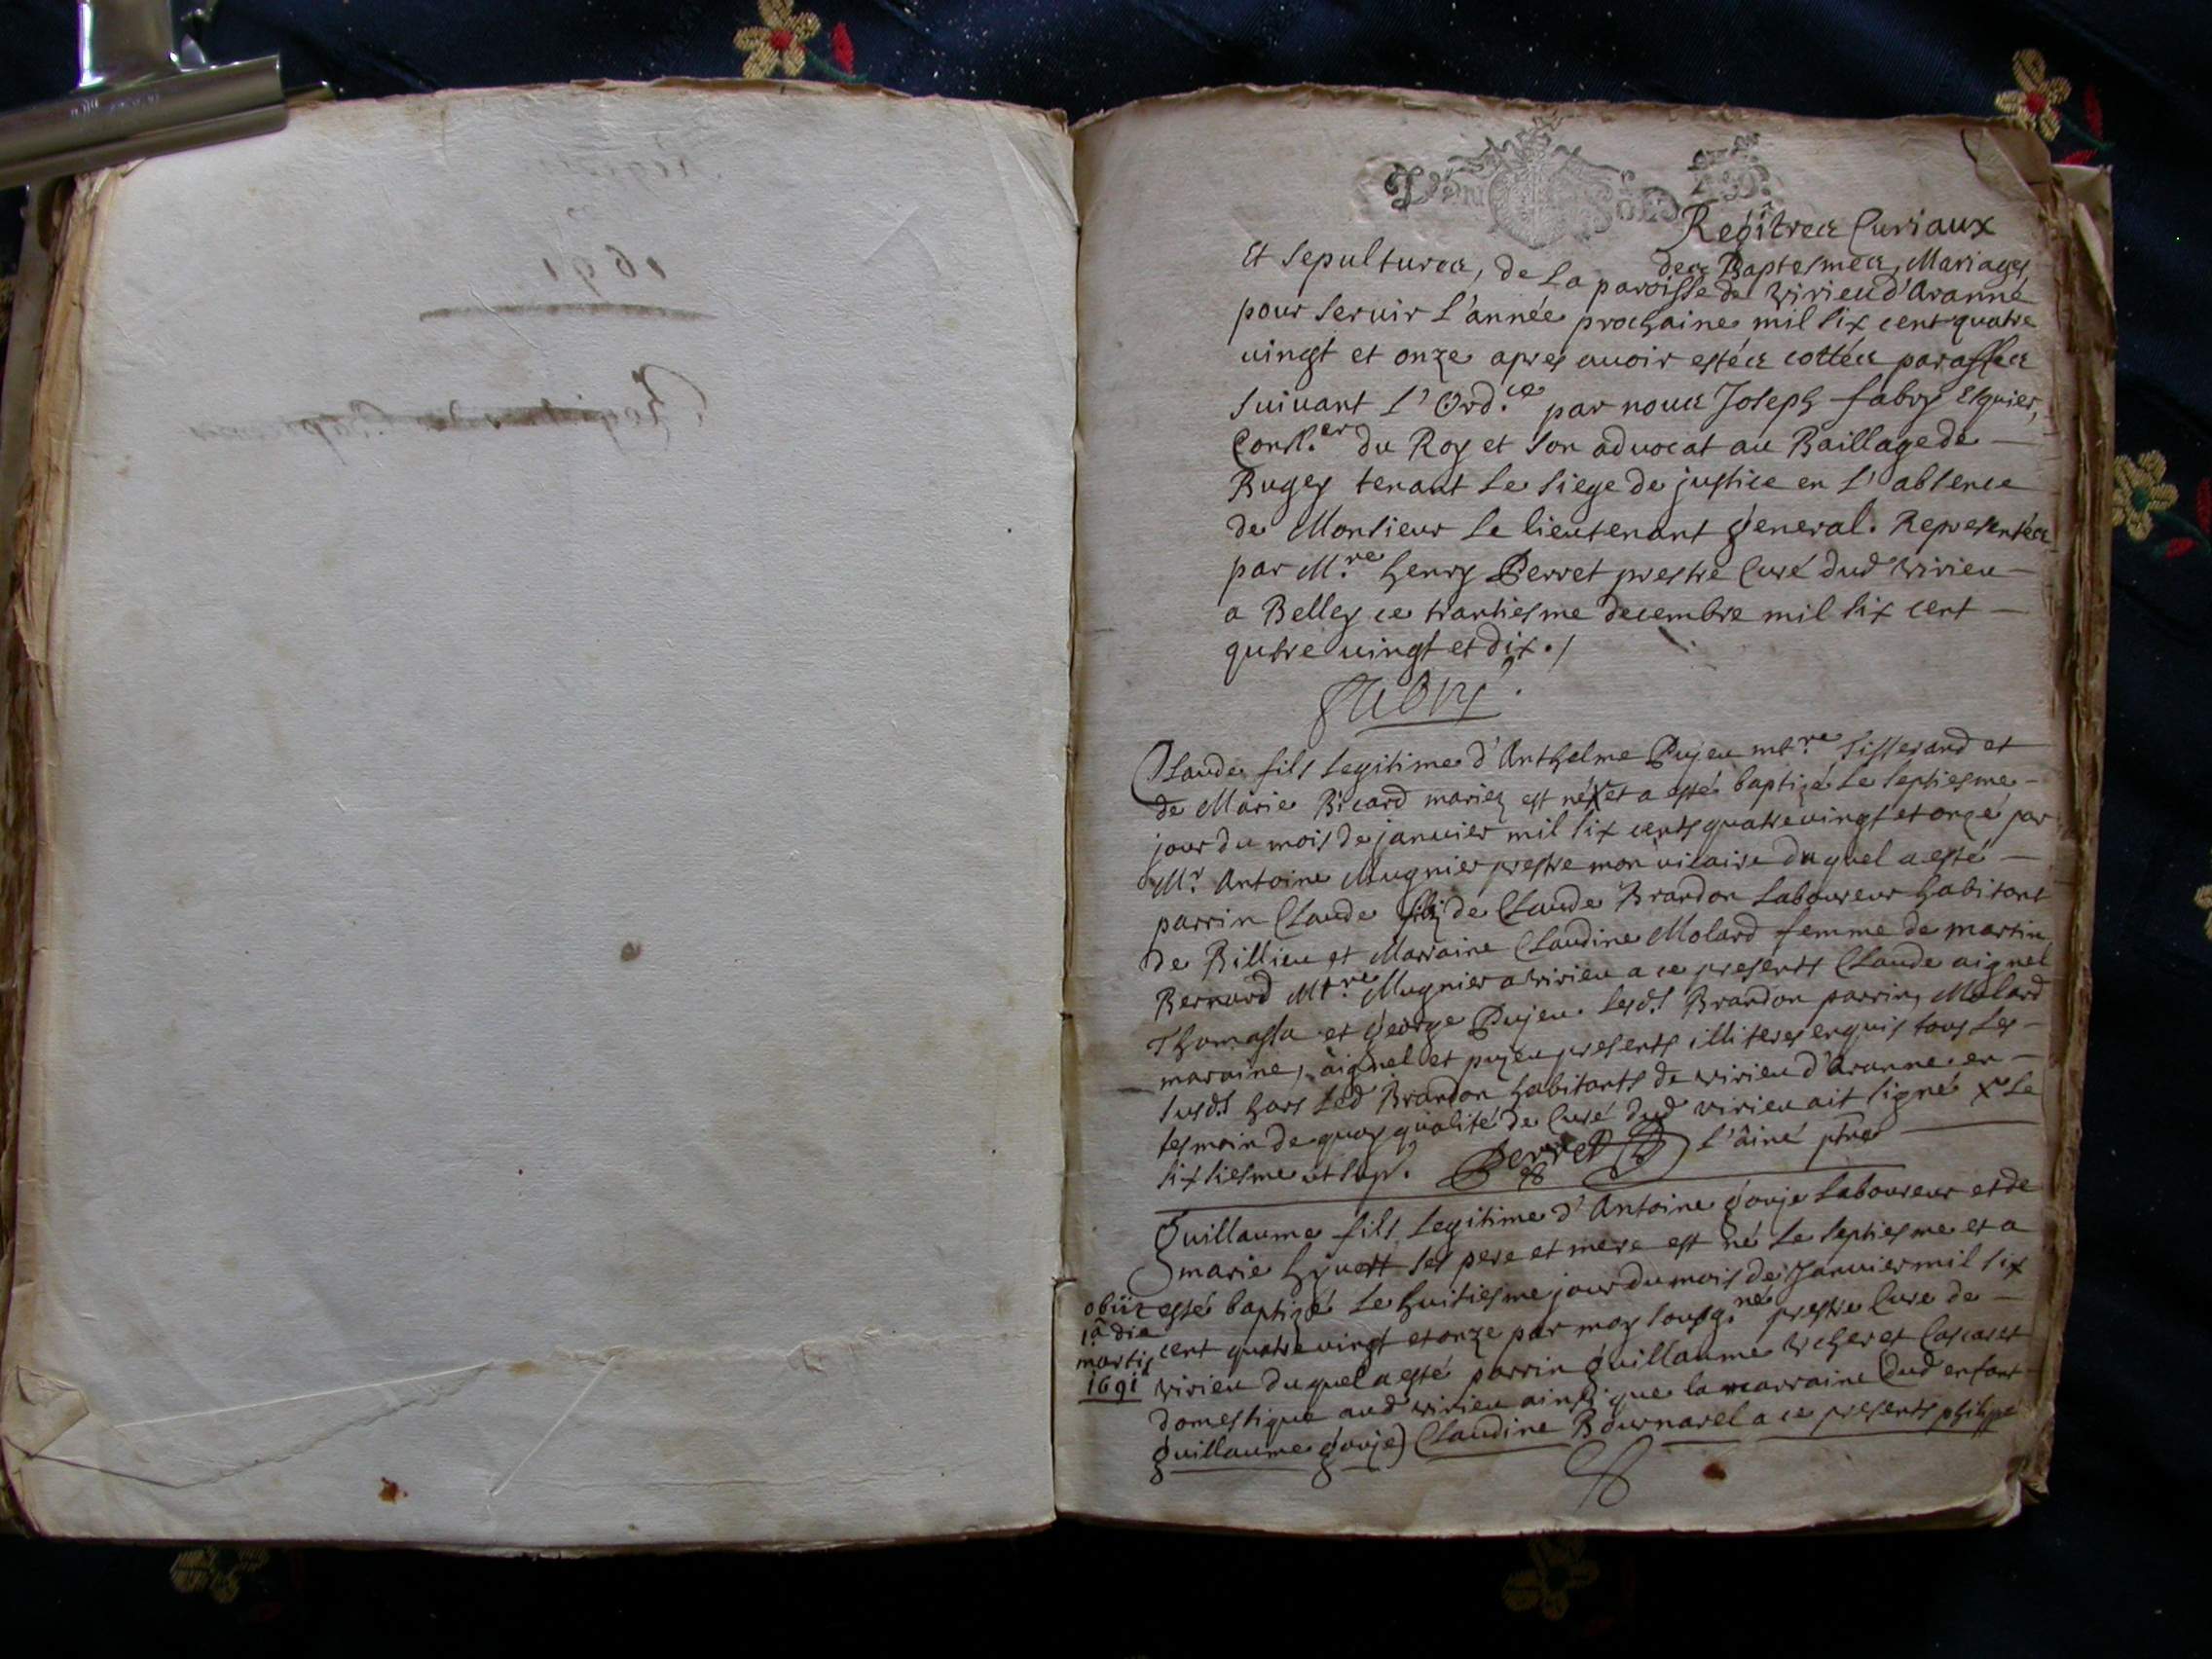 1691
Regîtres Curiaux
des Baptesmes, Mariages
Et sepultures, de La paroisse de Virieu d'Aranne
pour servir L'année prochaine mil six cent quatre
vingt et onze apres avoir estées cottées paraffées
suivant L'Ord.ce par nous Joseph fabry Esquier,
Cons.er du Roy et son advocat au Baillage de
Bugey tenant Le siege de justice en L'absence
de Monsieur Le lieutenant general. Representées
par M.re henry Perret prestre Curé dud virieu
a Belley ce trantiesme decembre mil six cent
qutre vingt et dix./
fabry
Claude fils Legitime d'Anthelme Pujeu mt.re Tisserand et
de Marie Bicard mariez est né x et a esté baptizé Le septiesme
jour du mois de janvier mil six cents quatre vingt et onze par
Mr Antoine Mugnier prestre mon vicaire duquel a esté
parrin Claude filz de Claude Brandon Laboureur habitant
de Billieu et Marraine Claudine Molard femme de martin
Bernard Mt.re Mugnier a virieu a ce presents Claude aignel
Thomassa et george Pujeu. Lesd.s Brandon parrin, Molard
maraine, aignel et pujeu presents illiteres enquis tous Les
susd.s hors Led Brandon habitants de virieu d'Aranne. en
tesmoin de quoy qualité de Curé dud virieu ait signé x Le
sixiesme ut sup.
Perret L'âiné ptre
Guillaume fils Legitime d'Antoine gouje Laboureur et de
marie hyvert ses pere et mere est né Le septiesme et a
esté baptizé Le huitiesme jour du mois de Janvier mil six
cent quatre vingt et onze par moy sousg.né prestre Cure de
virieu duquel a esté parrin guillaume
domestique aud virieu ainsi que la marraine (dud enfant
guillaume gouje) Claudine Bournarel a ce presents philippe
obiit
1â die
martis
1691